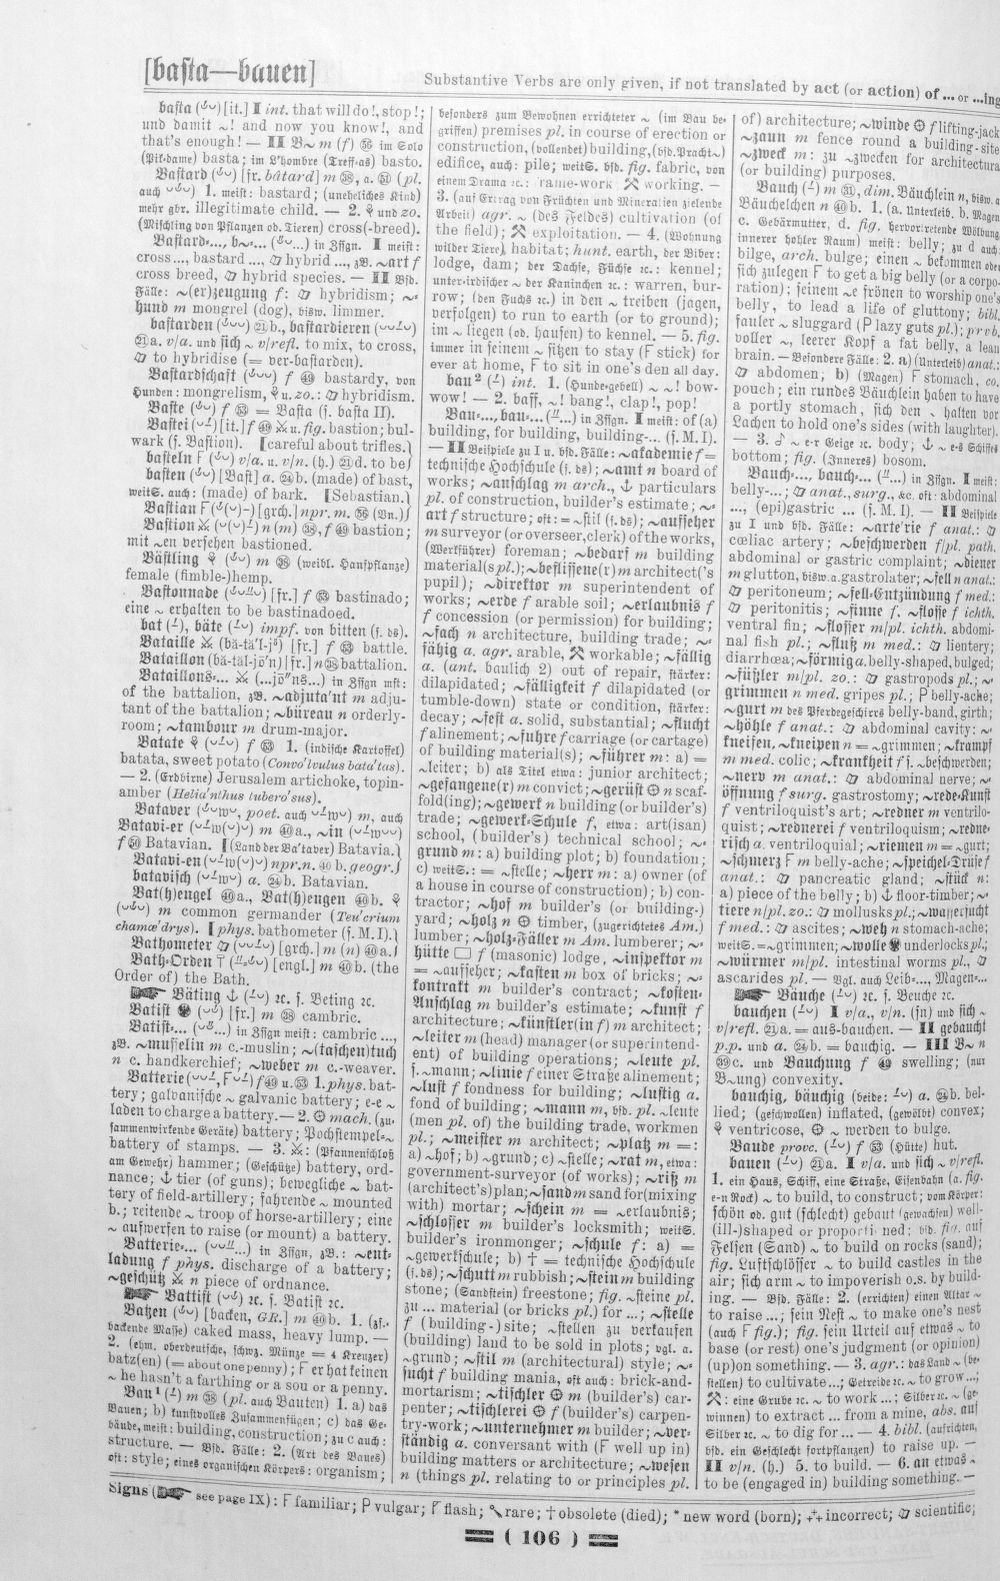 [basta—bauen]
Substantive Verbs are only given, if not translated by act (or action) of ... or ...ing
basta [it.] I int. that will do!, stop!;
und damit ~! and now you know!, and
that's enough! — II B~ m (f) im Solo
(Pik-dame) basta; im L'hombre (Treff-as) basto.
Bastard [fr. bâtard] m a. (pl.
auch 1. meist: bastard; (uneheliches Kind)
mehr gbr. illegitimate child. — 2. und zo.
(Mischling von Pflanzen od. Tieren) cross(-breed).
Bastard=..., b~=... in Zssgn. I meist:
cross..., bastard ..., hybrid ..., zB. ~art f
cross breed, hybrid species. — II Bsd.
Fälle: ~(er)zeugung f: hybridism; ~=
hund m mongrel (dog), bisw. limmer.
bastarden b., bastardieren
a. v/a. und sich ~ v/refl. to mix, to cross,
to hybridise (= ver-bastarden).
Bastardschaft f bastardy, von
Hunden: mongrelism, u. zo.: hybridism.
Baste f = Basta (s. basta II).
Bastei [it.] f u. fig. bastion; bul-
wark (s. Bastion). [careful about trifles.)
basteln F v/a. u. v/n. (h.) d. to be
basten [Bast] a. b. (made) of bast,
weitS. auch: (made) of bark. [Sebastian.)
Bastian F [grch.] npr. m. (Vn.)
Bastion n (m) f bastion;
mit ~en versehen bastioned.
Bästling m (weibl. Hanfpflanze)
female (fimble-)hemp.
Bastonnade [fr.] f bastinado;
eine ~ erhalten to be bastinadoed.
bat, bäte impf. von bitten (s. ds).
Bataille [fr.] f battle.
Bataillon [fr.] n battalion.
Bataillons=... in Zssgn mst:
of the battalion, zB. ~adjuta'nt m adju-
tant of the battalion; ~büreau n orderly-
room; ~tambour m drum-major.
Batate f 1. (indische Kartoffel)
batata, sweet potato (Convo'lvulus bata'tas).
— 2. (Erdbirne) Jerusalem artichoke, topin-
amber (Helia'nthus tubero'sus).
Bataver poet. auch m, auch
Batavi-er m a., ~in
f Batavian. [(Land der Ba'taver) Batavia.)
Batavi-en npr. n. b. geogr.
batavisch a. b. Batavian.
Bat(h)engel a., Bat(h)engen b.
m common germander (Teu'crium
chamæ'drys). [phys. bathometer (s. M. I).)
Bathometer [grch.] m (n) a.
Bath-Orden [engl.] m b. (the
Order of) the Bath.
Bäting 2c. s. Beting 2c.
Batist [fr.] m cambric.
Batist=... in Zssgn meist: cambric...,
zB. ~musselin m c.-muslin; ~(taschen)tuch
n c. handkerchief; ~weber m c.-weaver.
Batterie f u. 1. phys. bat-
tery; galvanische ~ galvanic battery; e-e ~
laden to charge a battery. — 2. mach. (zu-
sammenwirkende Geräte) battery; Pochstempel=~
battery of stamps. — 3. (Pfannenschloß
am Gewehr) hammer; (Geschütze) battery, ord-
nance; tier (of guns); bewegliche ~ bat-
tery of field-artillery; fahrende ~ mounted
b.; reitende ~ troop of horse-artillery; eine
~ aufwerfen to raise (or mount) a battery.
Batterie=... in Zssgn, zB.: ~ent-
ladung f phys. discharge of a battery;
~geschütz n piece of ordnance.
Battist 2c. s. Batist 2c.
Batzen [backen, GR.] m b. 1. (zs.-
backende Masse) caked mass, heavy lump. —
2. (ehm. oberdeutsche, schwz. Münze = 4 Kreuzer)
batz(en) (= about one penny); F er hat keinen
~ he hasn't a farthing or a sou or a penny.
Bau1 m (pl. auch Bauten) 1. a) das
Bauen; b) kunstvolles Zusammenfügen; c) das Ge-
bäude, meist: building, construction; zu c auch:
structure. — Bsd. Fälle: 2. (Art des Baues)
oft: style; eines organischen Körpers: organism;
besonders zum Bewohnen errichteter ~ (im Bau be-
griffen) premises pl. in course of erection or
construction, (vollendet) building, (bsd. Pracht~)
edifice, auch: pile; weitS. bsd. fig. fabric, von
einem Drama 2c.: frame-work; working. —
3. (auf Ertrag von Früchten und Mineralien zielende
Arbeit) agr. ~ (des Feldes) cultivation (of
the field); exploitation. — 4. (Wohnung
wilder Tiere) habitat; hunt. earth, der Biber:
lodge, dam; der Dachse, Füchse 2c.: kennel;
unter-irdischer ~ der Kaninchen 2c.: warren, bur-
row; (den Fuchs 2c.) in den ~ treiben (jagen,
verfolgen) to run to earth (or to ground);
im ~ liegen (od. hausen) to kennel. — 5. fig.
immer in seinem ~ sitzen to stay (F stick) for
ever at home, F to sit in one's den all day.
bau2 int. 1. (Hunde-gebell) ~ ~! bow-
wow! — 2. baff, ~! bang!, clap!, pop!
Bau=..., bau=... in Zssgn. I meist: of (a)
building, for building, building-... (s. M. I).
— II Beispiele zu I u. bsd. Fälle: ~akademie f =
technische Hochschule (s. ds); ~amt n board of
works; ~anschlag m arch., particulars
pl. of construction, builder's estimate; ~=
art f structure; oft: = ~stil (s. ds); ~aufseher
m surveyor (or overseer, clerk) of the works,
(Werkführer) foreman; ~bedarf m building
material (s pl.); ~beflissene(r) m architect('s
pupil); ~direktor m superintendent of
works; ~erde f arable soil; ~erlaubnis f
f concession (or permission) for building;
~fach n architecture, building trade; ~=
fähig a. agr. arable, workable; ~fällig
a. (ant. baulich 2) out of repair, stärker:
dilapidated; ~fälligkeit f dilapidated (or
tumble-down) state or condition, stärker:
decay; ~fest a. solid, substantial; ~flucht
f alinement; ~fuhre f carriage (or cartage)
of building material(s); ~führer m: a) =
~leiter; b) als Titel etwa: junior architect;
~gefangene(r) m convict; ~gerüst n scaf-
fold(ing); ~gewerk n building (or builder's)
trade; ~gewerk=Schule f, etwa: art(isan)
school, (builder's) technical school; ~=
grund m: a) building plot; b) foundation;
c) weitS.: = ~stelle; ~herr m: a) owner (of
a house in course of construction); b) con-
tractor; ~hof m builder's (or building-)
yard; ~holz n timber, (zugerichtetes Am.)
lumber; ~holz=Fäller m Am. lumberer; ~=
hütte f (masonic) lodge, ~inspektor m
= ~aufseher; ~kasten m box of bricks; ~=
kontrakt m builder's contract; ~kosten-
Anschlag m builder's estimate; ~kunst f
architecture; ~künstler(in f) m architect;
~leiter m (head) manager (or superintend-
ent) of building operations; ~leute pl.
s. ~mann; ~linie f einer Straße alinement;
~lust f fondness for building; ~lustig a.
fond of building; ~mann m, bsd. pl. ~leute
(men pl. of) the building trade, workmen
pl.; ~meister m architect; ~platz m =:
a) ~hof; b) ~grund; c) ~stelle; ~rat m, etwa:
government-surveyor (of works); ~riß m
(architect's) plan; ~sand m sand for (mixing
with) mortar; ~schein m = ~erlaubnis;
~schlosser m builder's locksmith; weitS.
builder's ironmonger; ~schule f: a) =
~gewerkschule; b) † = technische Hochschule
(s. ds); ~schutt m rubbish; ~stein m building
stone; (Sandstein) freestone; fig. ~steine pl.
zu ... material (or bricks pl.) for ...; ~stelle
f (building-)site; ~stellen zu verkaufen
(building) land to be sold in plots; vgl. a.
~grund; ~stil m (architectural) style; ~=
sucht f building mania, oft auch: brick-and-
mortarism; ~tischler m (builder's) car-
penter; ~tischlerei f (builder's) carpen-
try-work; ~unternehmer m builder; ~ver-
ständig a. conversant with (F well up in)
building matters or architecture; ~wesen
n (things pl. relating to or principles pl.
of) architecture; ~winde f lifting-jack
~zaun m fence round a building-site
~zweck m: zu ~zwecken for architectura
(or building) purposes.
Bauch m, dim. Bäuchlein n, bisw. a
Bäuchelchen n b. 1. (a. Unterleib, b. Magen
c. Gebärmutter, d. fig. hervortretende Wölbung
innerer hohler Raum) meist: belly; zu d auch:
bilge, arch. bulge; einen ~ bekommen oder
sich zulegen F to get a big belly (or a corpo-
ration); seinem ~e frönen to worship one's
belly, to lead a life of gluttony; bibl.
fauler ~ sluggard (P lazy guts pl.); prvb.
voller ~, leerer Kopf a fat belly, a lean
brain. — Besondere Fälle: 2. a) (Unterleib) anat.:
abdomen; b) (Magen) F stomach, co.
pouch; ein rundes Bäuchlein haben to have
a portly stomach, sich den ~ halten vor
Lachen to hold one's sides (with laughter).
— 3. ~ e-r Geige 2c. body; ~ e-s Schiffes
bottom; fig. (Inneres) bosom.
Bauch=..., bauch=... in Zssgn. I meist:
belly-...; anat., surg., &c. oft: abdominal
..., (epi)gastric ... (s. M. I). — II Beispiele
zu I und bsd. Fälle: ~arte'rie f anat.:
cœliac artery; ~beschwerden f/pl. path.
abdominal or gastric complaint; ~diener
m glutton, bisw. a. gastrolater; ~fell n anat.:
peritoneum; ~fell=Entzündung f med.:
peritonitis; ~finne f, ~flosse f ichth.
ventral fin; ~flosser m/pl. ichth. abdomi-
nal fish pl.; ~fluß m med.: lientery;
diarrhœa; ~förmig a. belly-shaped, bulged;
~füßler m/pl. zo.: gastropods pl.; ~=
grimmen n med. gripes pl.; P belly-ache;
~gurt m des Pferdegeschirrs belly-band, girth;
~höhle f anat.: abdominal cavity; ~=
kneifen, ~kneipen n = ~grimmen; ~krampf
m med. colic; ~krankheit f s. ~beschwerden;
~nerv m anat.: abdominal nerve; ~=
öffnung f surg. gastrostomy; ~rede=Kunst
f ventriloquist's art; ~redner m ventrilo-
quist; ~rednerei f ventriloquism; ~redne-
risch a. ventriloquial; ~riemen m = ~gurt;
~schmerz F m belly-ache; ~speichel=Drüse f
anat.: pancreatic gland; ~stück n:
a) piece of the belly; b) floor-timber; ~=
tiere n/pl. zo.: mollusks pl.; ~wassersucht
f med.: ascites; ~weh n stomach-ache;
weitS. = ~grimmen; ~wolle underlocks pl.;
~würmer m/pl. intestinal worms pl.,
ascarides pl. — Vgl. auch Leib=..., Magen=...
Bäuche 2c. s. Beuche 2c.
bauchen I v/a., v/n. (sn) und sich ~
v/refl. a. = aus-bauchen. — II gebaucht
p.p. und a. b. = bauchig. — III B~ n
c. und Bauchung f swelling; (nur
B~ung) convexity.
bauchig, bäuchig (beide: ) a. b. bel-
lied; (geschwollen) inflated, (gewölbt) convex;
ventricose, ~ werden to bulge.
Baude provc. f (Hütte) hut.
bauen a. I v/a. und sich ~ v/refl.
1. ein Haus, Schiff, eine Straße, Eisenbahn (a. fig.
e-n Rock) ~ to build, to construct; vom Körper:
schön od. gut (schlecht) gebaut (gewachsen) well-
(ill-)shaped or proportioned; bsd. fig. auf
Felsen (Sand) ~ to build on rocks (sand);
fig. Luftschlösser ~ to build castles in the
air; sich arm ~ to impoverish o.s. by build-
ing. — Bsd. Fälle: 2. (errichten) einen Altar ~
to raise ...; sein Nest ~ to make one's nest
(auch F fig.); fig. sein Urteil auf etwas ~ to
base (or rest) one's judgment (or opinion)
(up)on something. — 3. agr.: das Land ~ (be-
stellen) to cultivate ...; Getreide 2c. ~ to grow ...;
: eine Grube 2c. ~ to work ...; Silber 2c. ~ (ge-
winnen) to extract ... from a mine, abs. auf
Silber 2c. ~ to dig for ... — 4. bibl. (aufrichten,
bsd. ein Geschlecht fortpflanzen) to raise up. —
II v/n. (h.) 5. to build. — 6. an etwas ~
to be (engaged in) building something. —
Signs (see page IX): F familiar; P vulgar; flash; rare; † obsolete (died); * new word (born); incorrect; scientific;
( 106 )